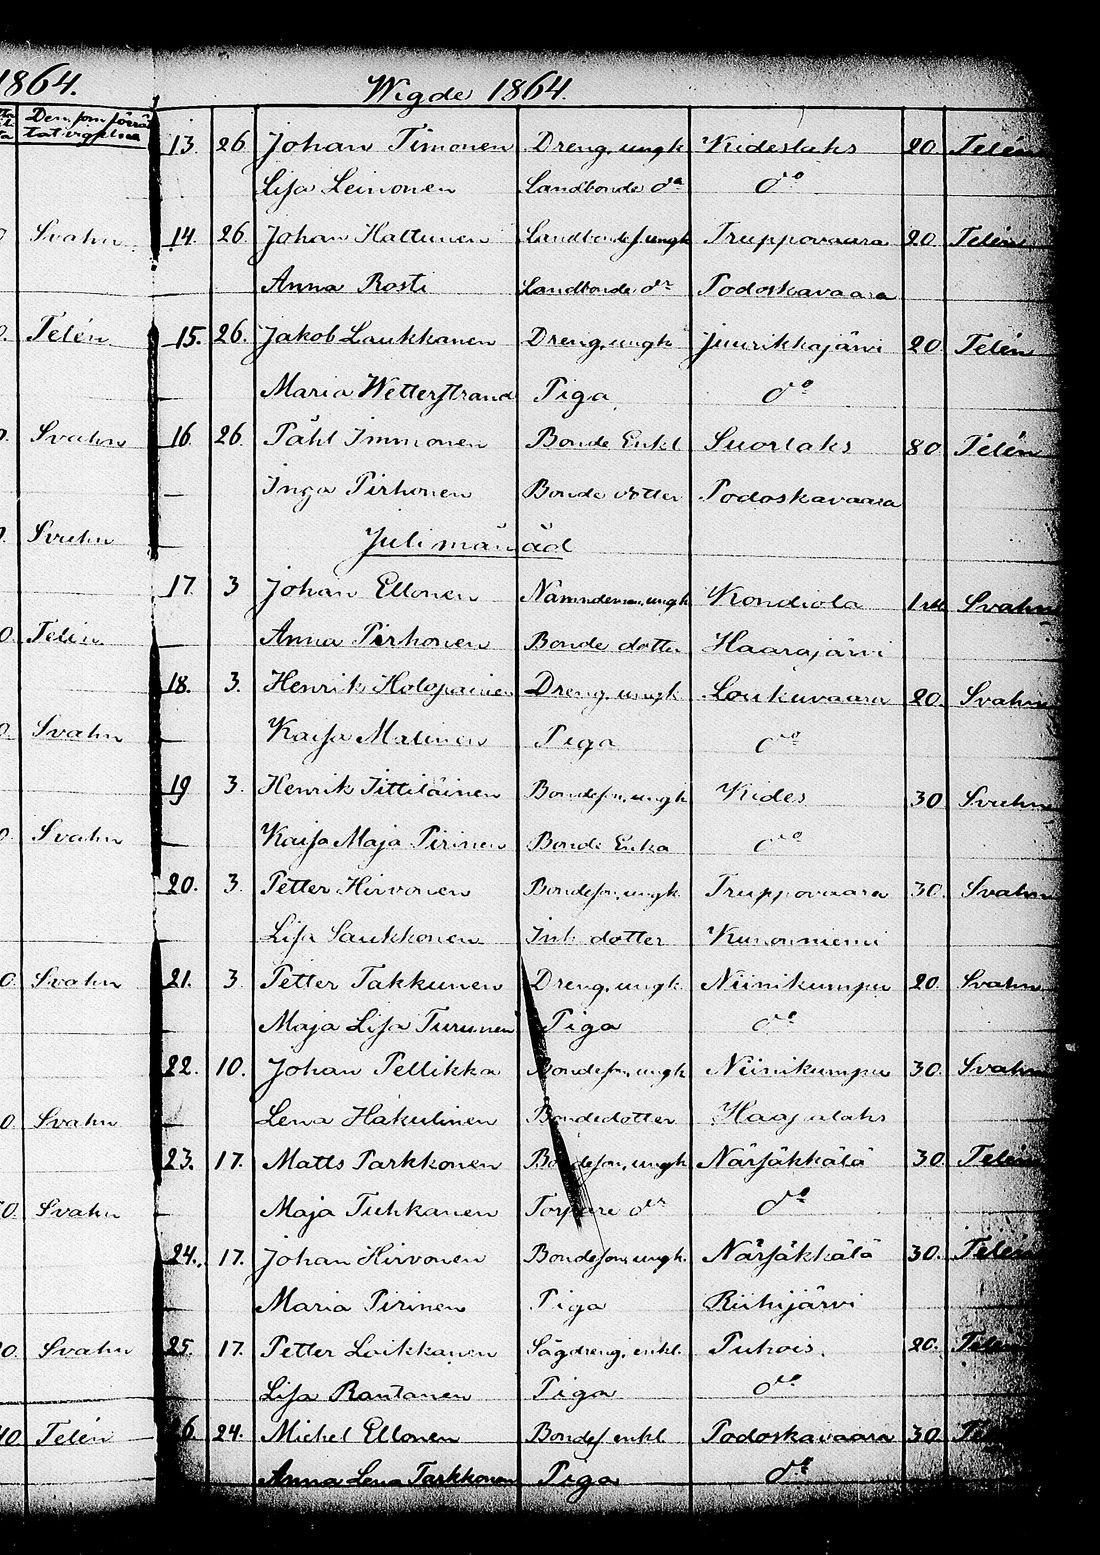 1864.
Dem, som förrättat vigseln
Svahn
Telén
Svahn
Svahn
Telén
Svahn
Svahn
Svahn
Svahn
Svahn
Svahn
Telén
Wigde 1864.
13. 26. Johan Timonen Dreng, ungk Kideslaks 20 Telén
Lisa Leinonen Landbonde dr do
14. 26. Johan Hattunen Landbondes. ungk Truppovaara 20 Telén
Anna Rosti Landbonde dr Podoskavaara
15. 26. Jakob Laukkanen Dreng, ungk Juurikkajärvi 20 Telén
Maria Wetterstrand Piga do
16. 26. Påhl Immonen Bonde Enkl Suorlaks 80 Telén
Inga Pirhonen Bonde dotter Podoskavaara
Juli månad
17. 3 Johan Ellonen Nämndeman, ungk Kondiola 1 Svahn
Anna Pirhonen Bonde dotter Haarajärvi
18. 3. Henrik Holopainen Dreng, ungk Loukuvaara 20. Svahn
Kaisa Malinen Piga do
19 3. Henrik Tittiläinen Bondeson, ungk Kides 30 Svahn
Kaisa Maja Pirinen Bonde Enka do
20. 3. Petter Hirvonen Bondeson, ungk. Truppovaara 30. Svahn
Lisa Saukkonen Inh dotter Kunonniemi
21. 3 Petter Takkunen Dreng, ungk. Niinikumpu 20. Svahn
Maja Lisa Turunen Piga do
22. 10. Johan Pellikka Bondeson, ungk Niinikumpu 30. Svahn
Lena Hakulinen Bondedotter Haapalaks
23. 17. Matts Parkkonen Bondeson, ungk Närsäkkälä 30. Telén
Maja Tuhkanen Torpare dr do
24. 17. Johan Hirvonen Bondeson, ungk. Närsäkkälä 30. Telén
Maria Pirinen Piga Riihijärvi
25. 17. Petter Loikkanen Sågdreng, enkl. Puhois. 20. Telén
Lisa Rantanen Piga do
26. 24. Michel Ellonen Bondes enkl Podoskavaara 30.
Anna Lena Parkkonen Piga do